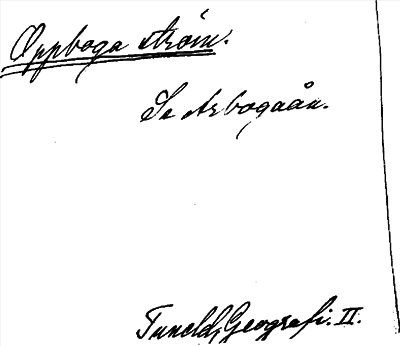 Oppboga ström.
Se Arbogaån.
Tuneld, Geografi. II.